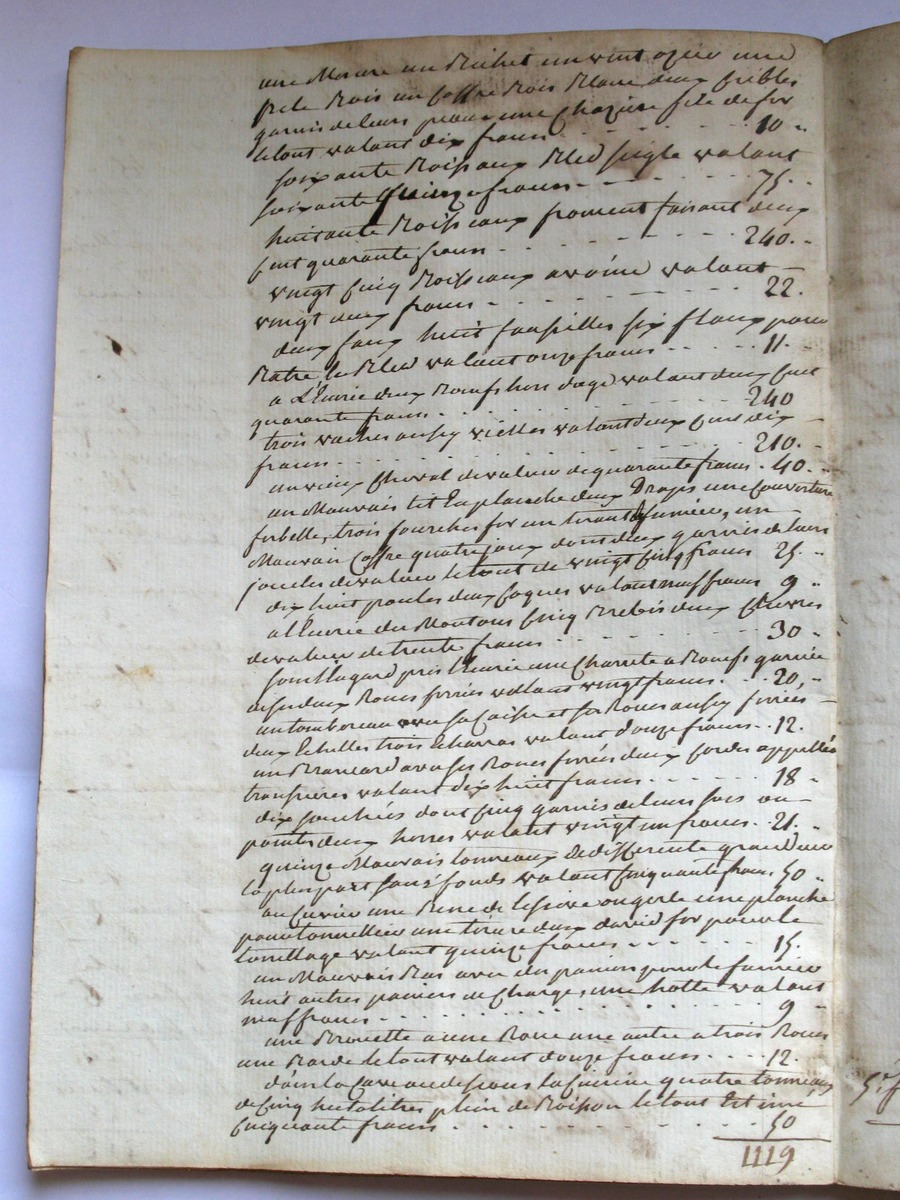 une Mesure un Bichet un vint
pele Bois un Coffre Bois Blanc deux Cribles
garnis de leurs une Chaziere fele de fer
le tout valant dix francs - - - 10 -
soixante Boisseaux Bled seigle valant
soixante quinze francs - - - 75 -
huitante Boisseaux froment faisant deux
Cent quarante francs - - - 240 -
vingt Cinq Boisseaux avoine valant
vingt deux francs - - - 22 -
deux faux huit faucilles six fleaux pour
Batre le Bled valant onze francs - - - 11 -
a L'Ecurie deux Boeufs hors dage valant deux Cent
quarante francs - - - 240
trois vaches aussy vielles valant deux Cent dix
francs - - - 210 -
un vieux Cheval de valeur de quarante francs - 40 -
un Mauvais lit En planche deux Draps une Couverture
trois fourches fer un fumier, un
Mauvais Coffre quatre joux dont deux garnis de leurs
joucles de valeur le tout de vingt Cinq francs 25 -
dix huit poules deux Coques valant neuf francs 9 -
a l'Ecurie des Moutons Cinq Brebis deux Chevres
de valeur de trente francs - - - 30 -
sous l'agard pres l'Ecurie une Charette a Boeufs garnie
de ses deux Roues ferrées valant vingt francs - 20 -
un tombereau avec sa Caisse et ses Roues aussy ferrées
deux Echelles trois valant douze francs - 12 -
un Brancard avec ses Roues ferrées deux Cordes appellées
valant dix huit francs - - - 18 -
dix dont Cinq garnis de leurs ou
deux valant vingt un francs - 21 -
quinze Mauvais tonneaux de differente grandeur
la pluspart sans fonds valant Cinquante francs 50 -
au Cuvier une Bene de lessive ou gerle une planche
une deux david fer pour le
valant quinze francs - - - 15 -
un Mauvais Bas avec des paniers pour le fumier
huit autres paniers de Charge, une hotte valant
neuf francs - - - 9 -
une Brouette a une Roue une autre a trois Roues
une le tout valant douze francs - - - 12 -
dans la Cave au dessous la Cuisine quatre tonneaux
de Cinq hectolitres plein de Boisson le tout Estimé
Cinquante francs - - - 50
1119